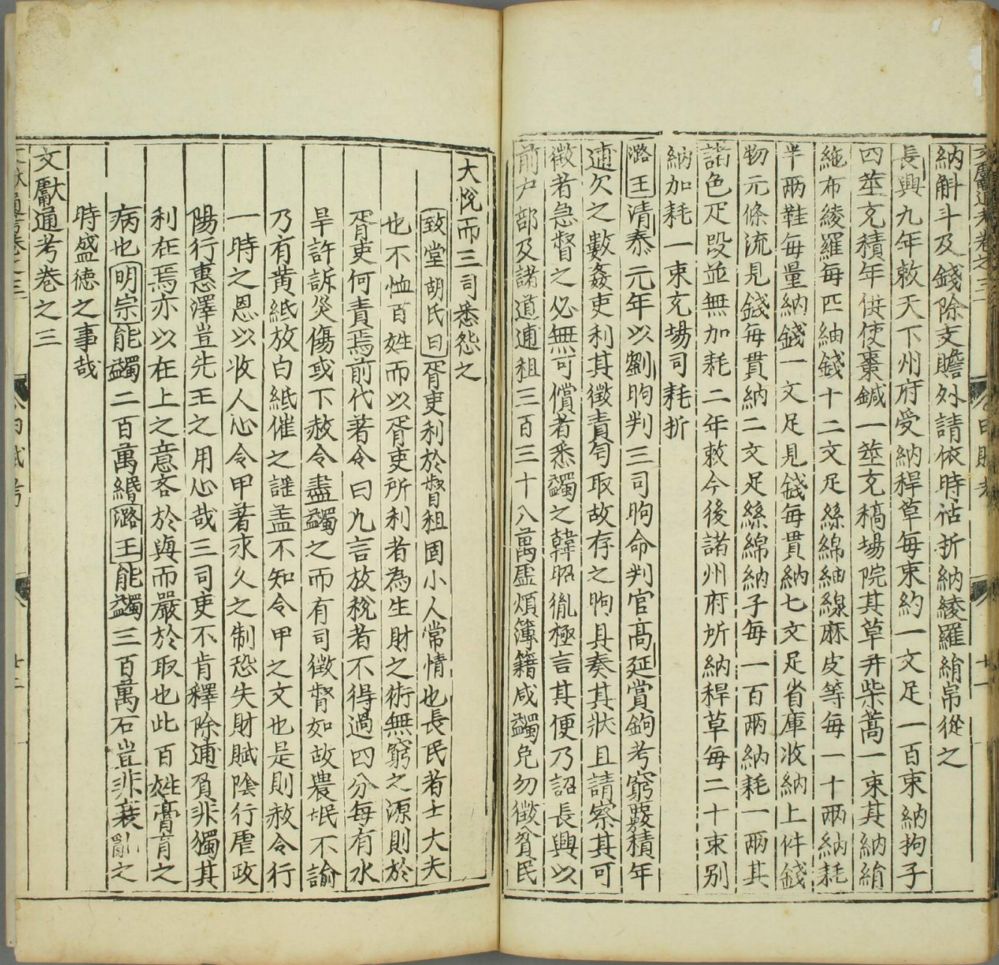 文獻通考卷之三
田賦考
廿一
納斛斗及錢除支贍外請依時估折納綾羅絹帛從之
長興九年敕天下州府受納稈草每束約一文足一百束納拘子
四莖充積年供使棗鍼一莖充稿場院其草并柴蒿一束其納絹
絁布綾羅每匹紬錢十二文足絲綿紬線麻皮等每一十兩納耗
半兩鞋每量納錢一文足見錢每貫納七文足省庫收納上件錢
物元條流見錢每貫納二文足絲綿納子每一百兩納耗一兩其
諸色疋段並無加耗二年敕今後諸州府所納稈草每二十束別
納加耗一束充場司耗折
潞王清泰元年以劉昫判三司昫命判官高延賞鉤考窮覈積年
逋欠之數姦吏利其徵責匄取故存之昫具奏其狀且請察其可
徵者急督之必無可償者悉蠲之韓昭胤極言其便乃詔長興以
前戶部及諸道逋租三百三十八萬虛煩簿籍咸蠲免勿徵貧民
大悅而三司悉怨之
致堂胡氏曰胥吏利於督租固小人常情也長民者士大夫
也不恤百姓而以胥吏所利者為生財之術無窮之源則於
胥吏何責焉前代著令曰凡言放稅者不得過四分每有水
旱許訴災傷或下赦令盡蠲之而有司徵督如故農氓不諭
乃有黃紙放白紙催之謹盖不知令甲之文也是則赦令行
一時之恩以收人心令甲著永久之制恐失財賦陰行虐政
陽行惠澤豈先王之用心哉三司吏不肯釋除逋負非獨其
利在焉亦以在上之意吝於與而嚴於取也此百姓膏肓之
病也明宗能蠲二百萬緡潞王能蠲三百萬石豈非衰亂之
時盛德之事哉
文獻通考卷之三
田賦考
廿二